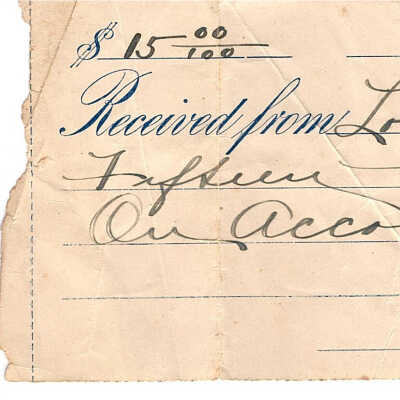 $ 15 00/100
Received from Lo
Fifteen
On Acco